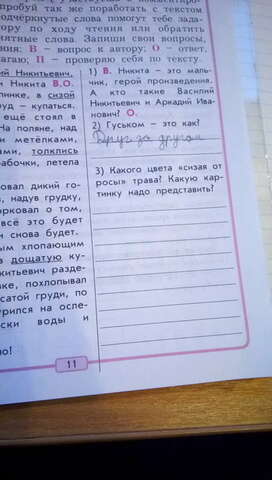 пробуй так же поработать с текстом
подчёркнутые слова помогут тебе зада-
вору по ходу чтения или обратить
нятные слова. Запиши свои вопросы,
ения: В – вопрос к автору; О – ответ,
лагаю; П – проверяю себя по тексту.
ий Никитьевич,
и Никита В.О.
линке, в сизой
руд – купаться.
ещё стоял в
На поляне, над
и метёлками,
ами, толклись
абочки, летела
овал дикий го-
, надув грудку,
орковал о том,
всё это будет
и снова будет.
ым хлопающим
в дощатую ку-
китьевич разде-
вке, похлопывал
сатой груди, по
урился на осле-
ски воды и
но!
1) В. Никита – это маль-
чик, герой произведения.
А кто такие Василий
Никитьевич и Аркадий Ива-
нович? О.
2) Гуськом – это как?
Друг за другом
3) Какого цвета «сизая от
росы» трава? Какую кар-
тинку надо представить?
11